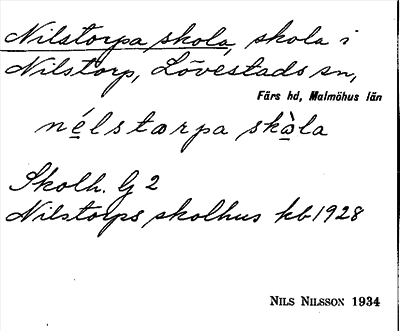 Nilstorpa skola, skola i
Nilstorp, Lövestads sn,
Färs hd, Malmöhus län
nélstorpa skàla
Skolh. G 2
Nilstorps skolhus kb 1928
NILS NILSSON 1934